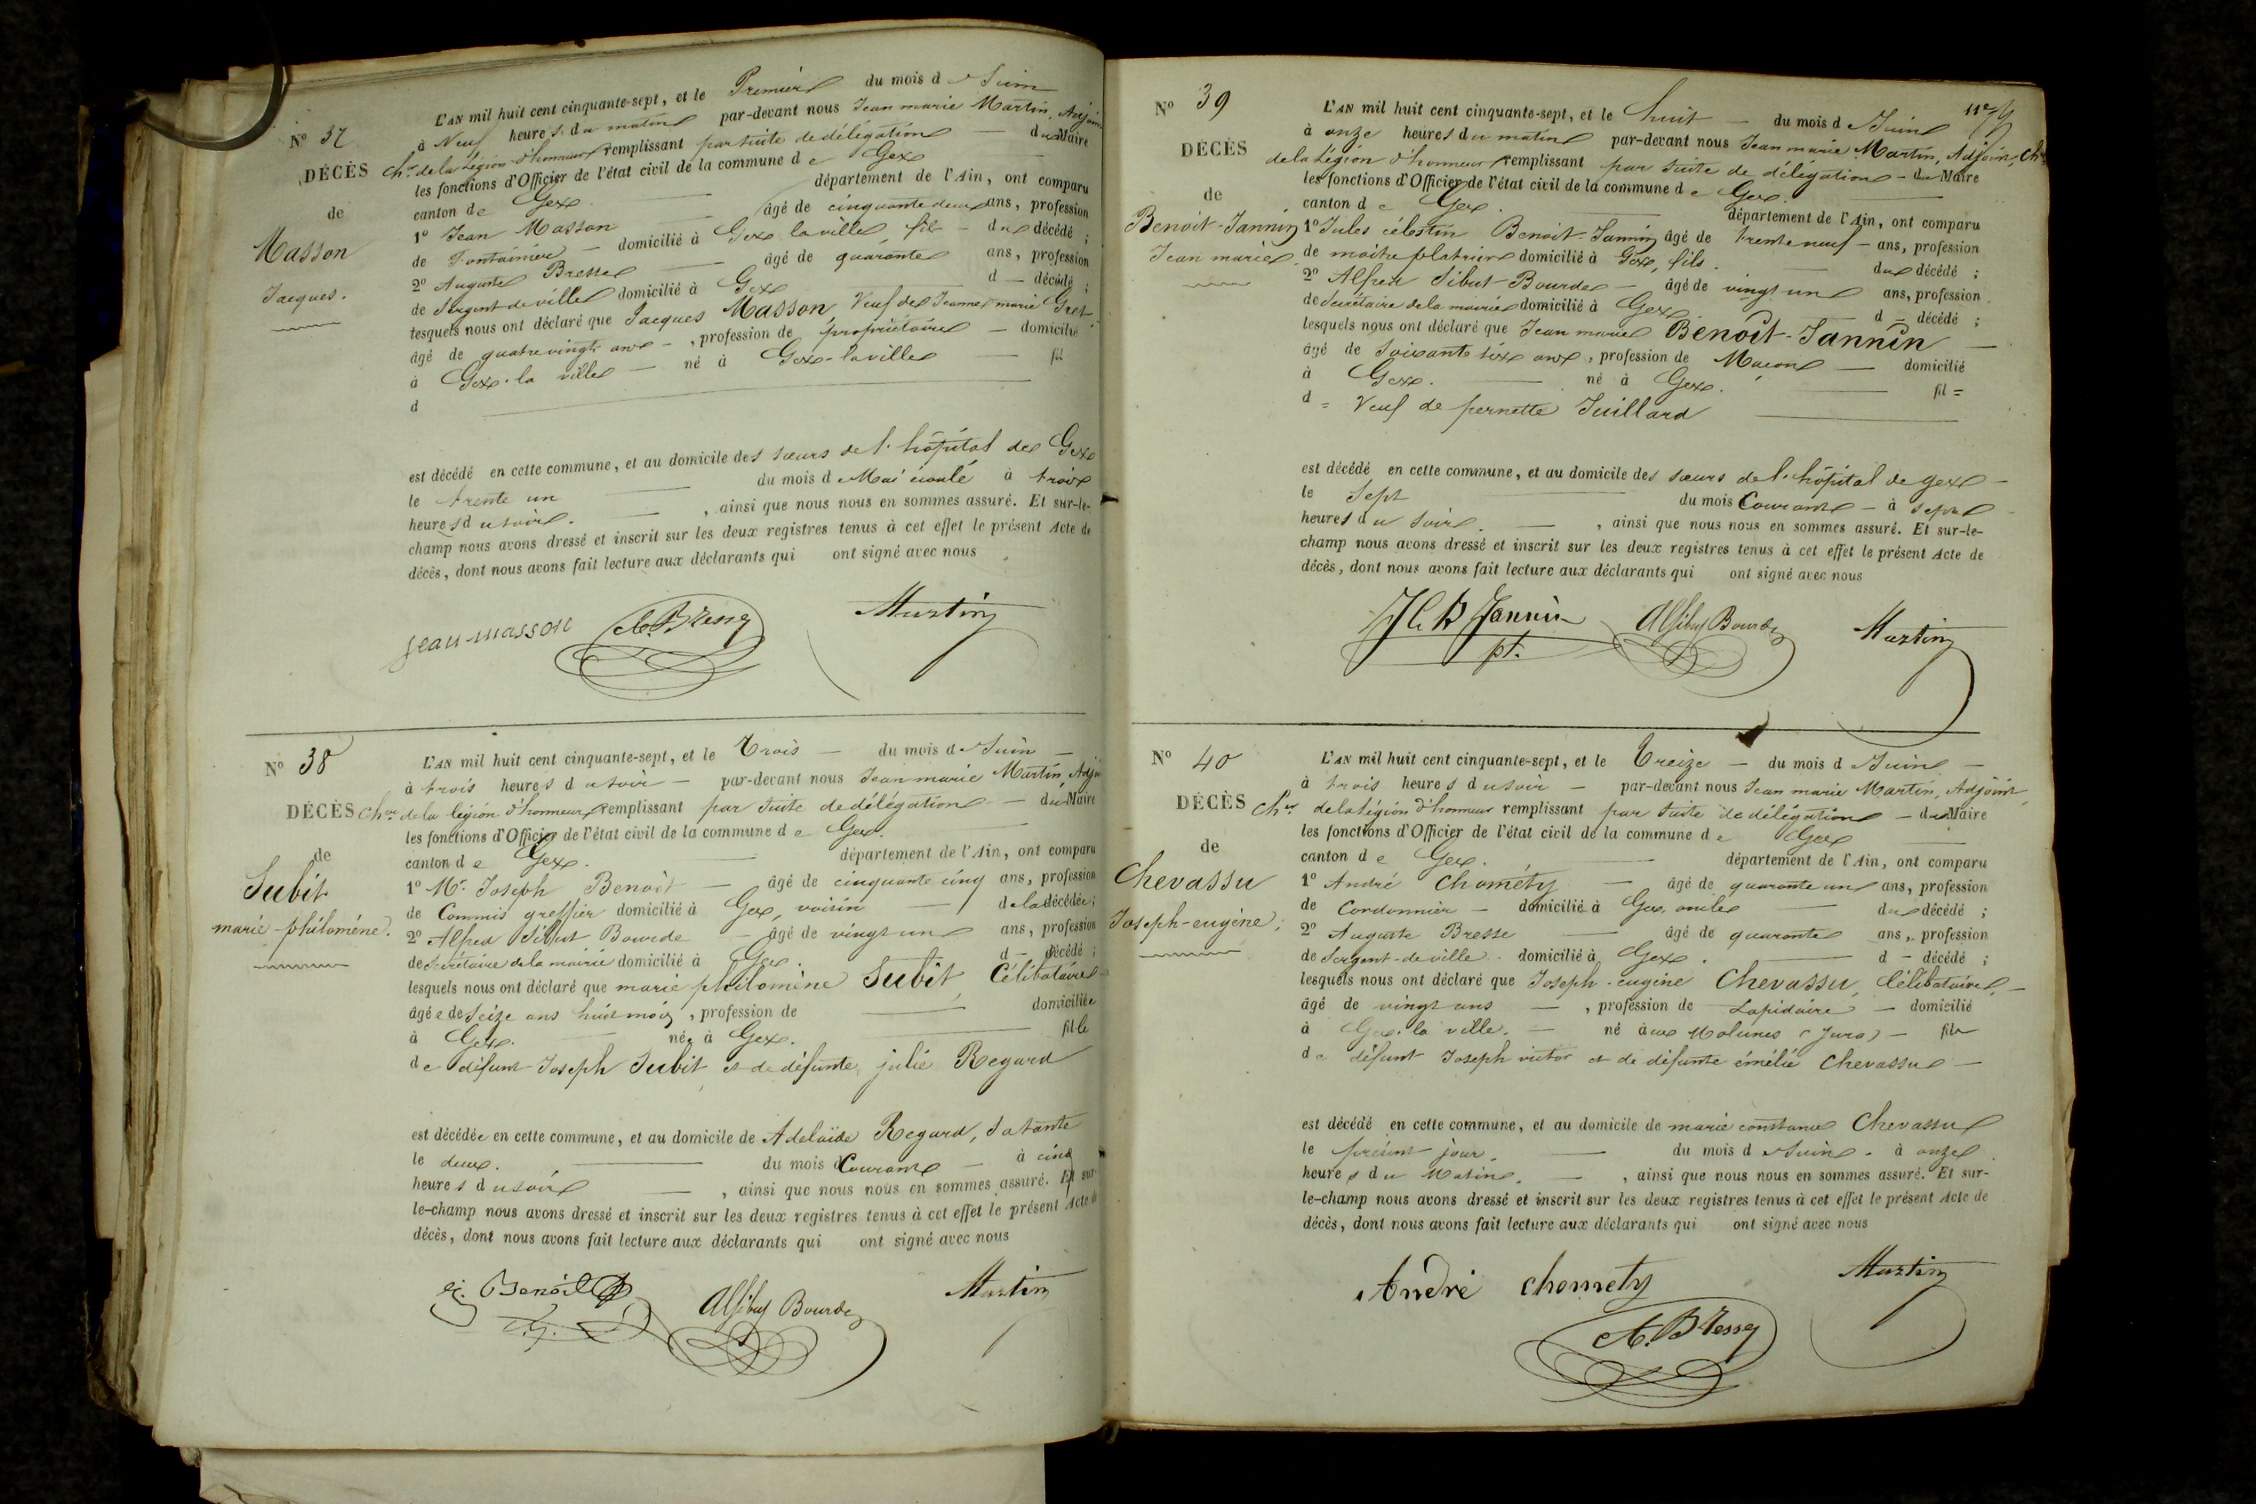 N° 37
DÉCÈS
de
Masson
Jacques.
L'AN mil huit cent cinquante-sept, et le Premier du mois d Juin
à Neuf heures du matin par-devant nous Jean marie Martin, Adjoint
chr. de la légion d'honneur remplissant par suite de délégation — du Maire
les fonctions d'Officier de l'état civil de la commune de Gex
canton de Gex département de l'Ain, ont comparu
1° Jean Masson âgé de cinquante deux ans, profession
de Fontainier — domicilié à Gex la ville, fils — du décédé ;
2° Auguste Bresse — âgé de quarante ans, profession
de Sergent de ville domicilié à Gex d — décédé ;
lesquels nous ont déclaré que Jacques Masson, Veuf de Jeanne marie
âgé de quatre vingts ans —, profession de propriétaire — domicilié
à Gex-la ville — né à Gex-la ville — fil
d
est décédé en cette commune, et au domicile des sœurs de l'hôpital de Gex
le trente un du mois d Mai écoulé à trois
heures du soir. —, ainsi que nous nous en sommes assuré. Et sur-le-
champ nous avons dressé et inscrit sur les deux registres tenus à cet effet le présent Acte de
décès, dont nous avons fait lecture aux déclarants qui ont signé avec nous
jean masson A. Bresse Martin
N° 38
DÉCÈS
de
Subit
marie-philomène.
L'AN mil huit cent cinquante-sept, et le Trois — du mois d Juin —
à trois heures du soir — par-devant nous Jean marie Martin, Adjoint
cher de la légion d'honneur remplissant par suite de délégation — du Maire
les fonctions d'Officier de l'état civil de la commune de Gex.
canton de Gex. département de l'Ain, ont comparu
1° Mr. Joseph Benoit — âgé de cinquante cinq ans, profession
de Commis greffier domicilié à Gex, voisin — de la décédée ;
2° Alfred Sibut Bourde — âgé de vingt un ans, profession
de Secrétaire de la mairie domicilié à Gex. d — décédé ;
lesquels nous ont déclaré que marie philomène Subit, Célibataire
âgée de Seize ans huit mois, profession de — domiciliée
à Gex. née à Gex. fille
de défunt Joseph Subit et de défunte julie Regard
est décédée en cette commune, et au domicile de Adelaïde Regard, sa tante
le deux. du mois Courant — à cinq
heures du soir —, ainsi que nous nous en sommes assuré. Et sur-
le-champ nous avons dressé et inscrit sur les deux registres tenus à cet effet le présent Acte de
décès, dont nous avons fait lecture aux déclarants qui ont signé avec nous
Benoit Alf Sibut Bourde Martin
N° 39
DÉCÈS
de
Benoit-Jannin
Jean marie.
L'AN mil huit cent cinquante-sept, et le huit — du mois d Juin
à onze heures du matin par-devant nous Jean marie Martin, Adjoint, chr
de la légion d'honneur remplissant par suite de délégation — du Maire
les fonctions d'Officier de l'état civil de la commune de Gex.
canton de Gex. département de l'Ain, ont comparu
1° Jules célestin Benoit-Jannin âgé de trente neuf — ans, profession
de maitre platrier domicilié à Gex, fils. du décédé ;
2° Alfred Sibut-Bourde — âgé de vingt un ans, profession
de Secrétaire de la mairie domicilié à Gex. d — décédé ;
lesquels nous ont déclaré que Jean marie Benoit-Jannin —
âgé de Soixante six ans, profession de Macon — domicilié
à Gex. né à Gex. fil =
d = Veuf de pernette Juillard
est décédé en cette commune, et au domicile des sœurs de l'hôpital de gex —
le Sept du mois Courant — à sept
heures du soir. —, ainsi que nous nous en sommes assuré. Et sur-le-
champ nous avons dressé et inscrit sur les deux registres tenus à cet effet le présent Acte de
décès, dont nous avons fait lecture aux déclarants qui ont signé avec nous
J C B Jannin pt. Alf Sibut Bourde Martin
N° 40
DÉCÈS
de
Chevassu
Joseph-eugène ;
L'AN mil huit cent cinquante-sept, et le Treize — du mois d Juin —
à trois heures du soir — par-devant nous Jean marie Martin, Adjoint,
Chr de la légion d'honneur remplissant par suite de délégation — du Maire
les fonctions d'Officier de l'état civil de la commune de Gex
canton de Gex. département de l'Ain, ont comparu
1° André Chométy — âgé de quarante un ans, profession
de Cordonnier — domicilié à Gex, oncle — du décédé ;
2° Auguste Bresse — âgé de quarante ans, profession
de Sergent-de ville. domicilié à Gex. d — décédé ;
lesquels nous ont déclaré que Joseph-eugène Chevassu, Célibataire, —
âgé de vingt ans —, profession de Lapidaire — domicilié
à Gex-la ville. — né aux Molunes (Jura) — fils
de défunt Joseph victor et de défunte émélie Chevassu —
est décédé en cette commune, et au domicile de marie constance Chevassu
le présent jour. du mois d Juin. à onze
heures du Matin. —, ainsi que nous nous en sommes assuré. Et sur-
le-champ nous avons dressé et inscrit sur les deux registres tenus à cet effet le présent Acte de
décès, dont nous avons fait lecture aux déclarants qui ont signé avec nous
André chomety Martin
A. Bresse